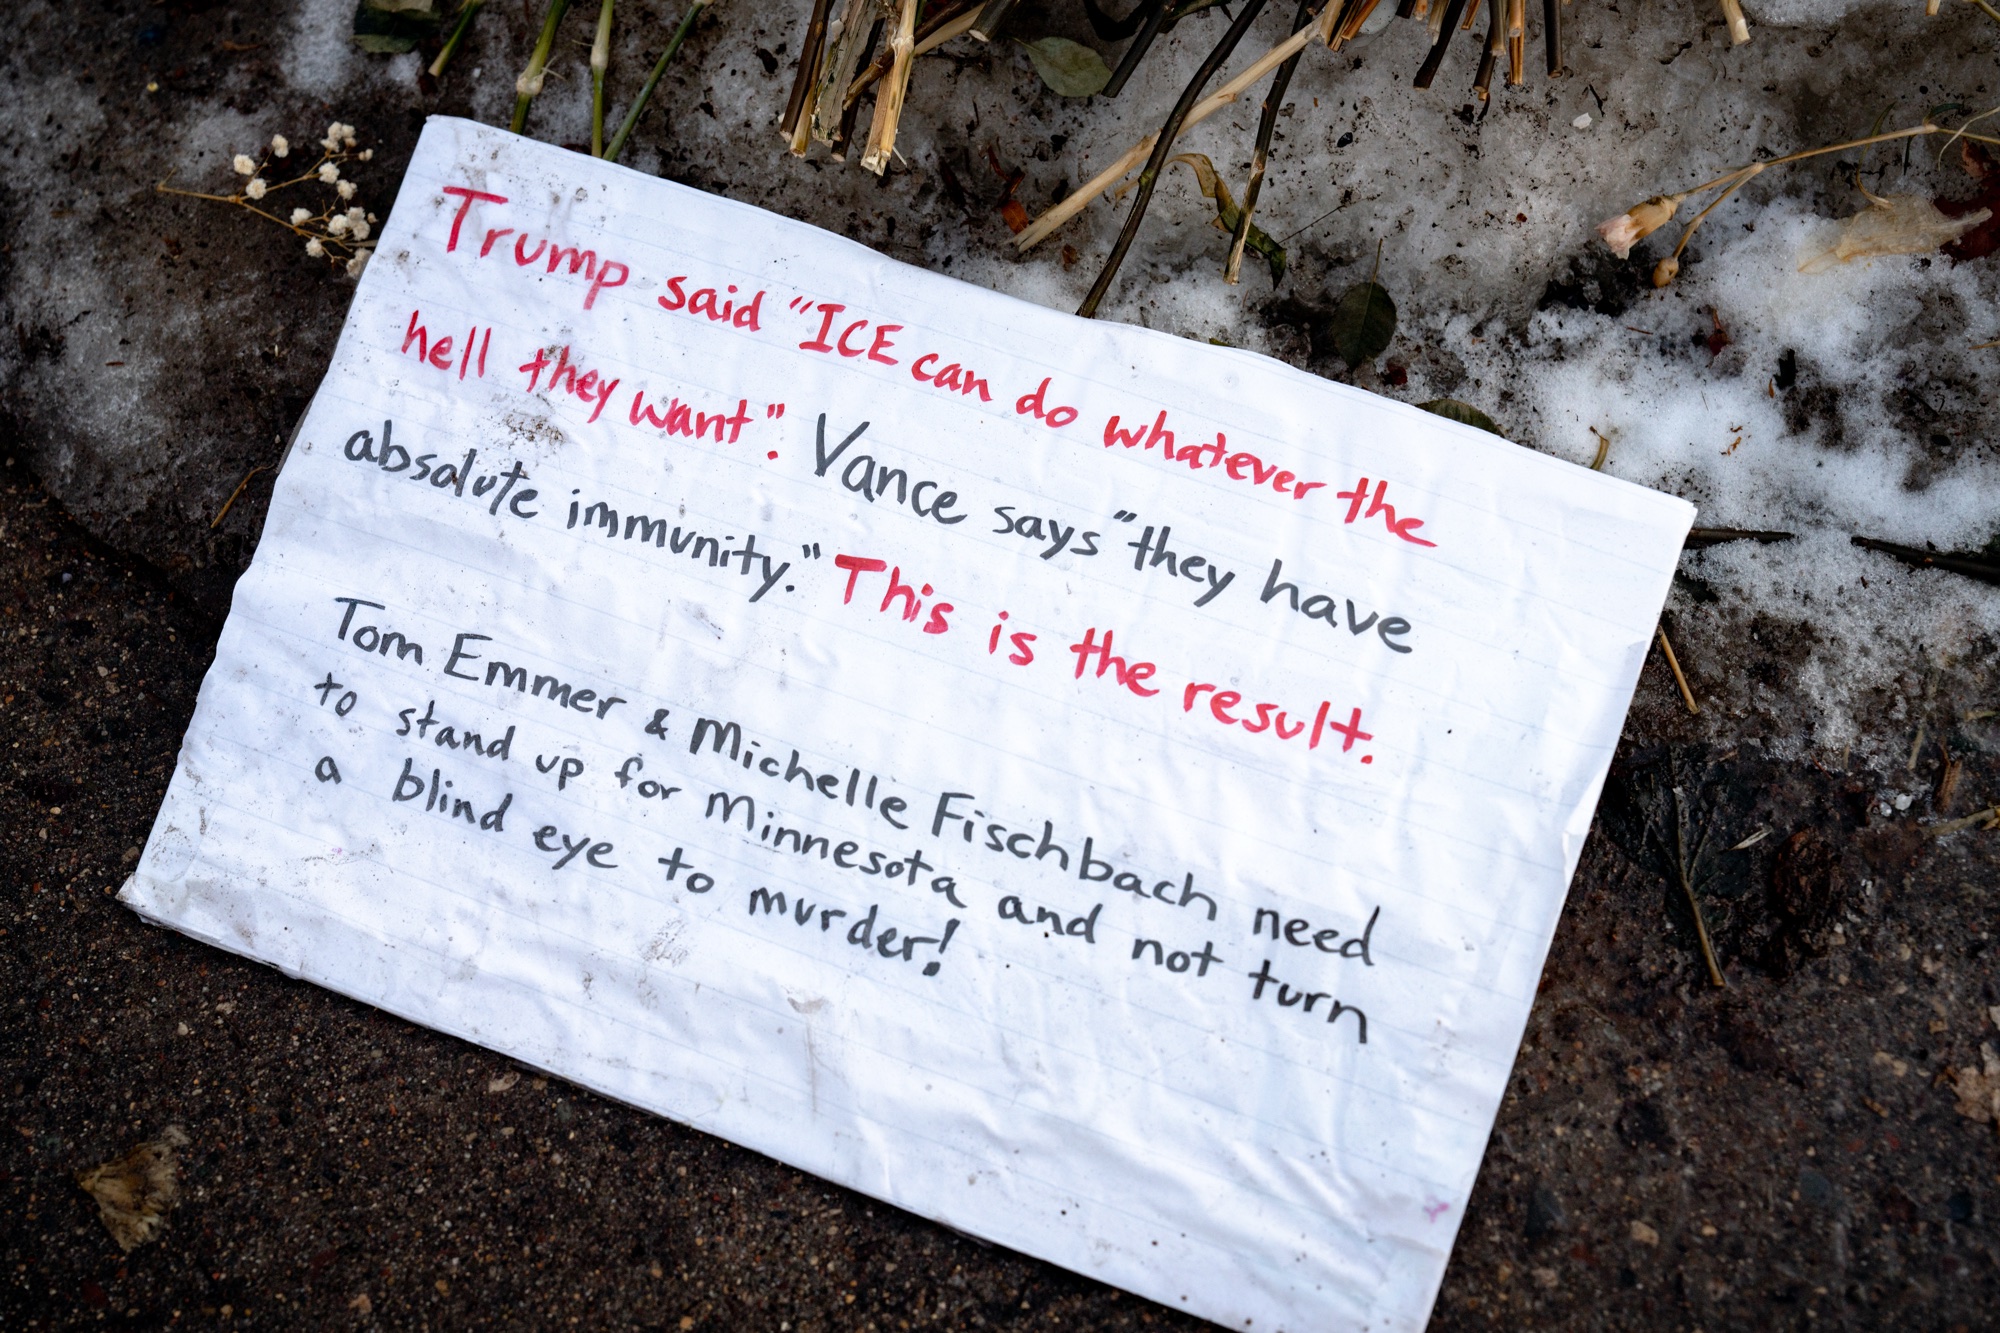 Trump said "ICE can do whatever the
hell they want". Vance says "they have
absolute immunity." This is the result.
Tom Emmer & Michelle Fischbach need
to stand up for Minnesota and not turn
a blind eye to murder!